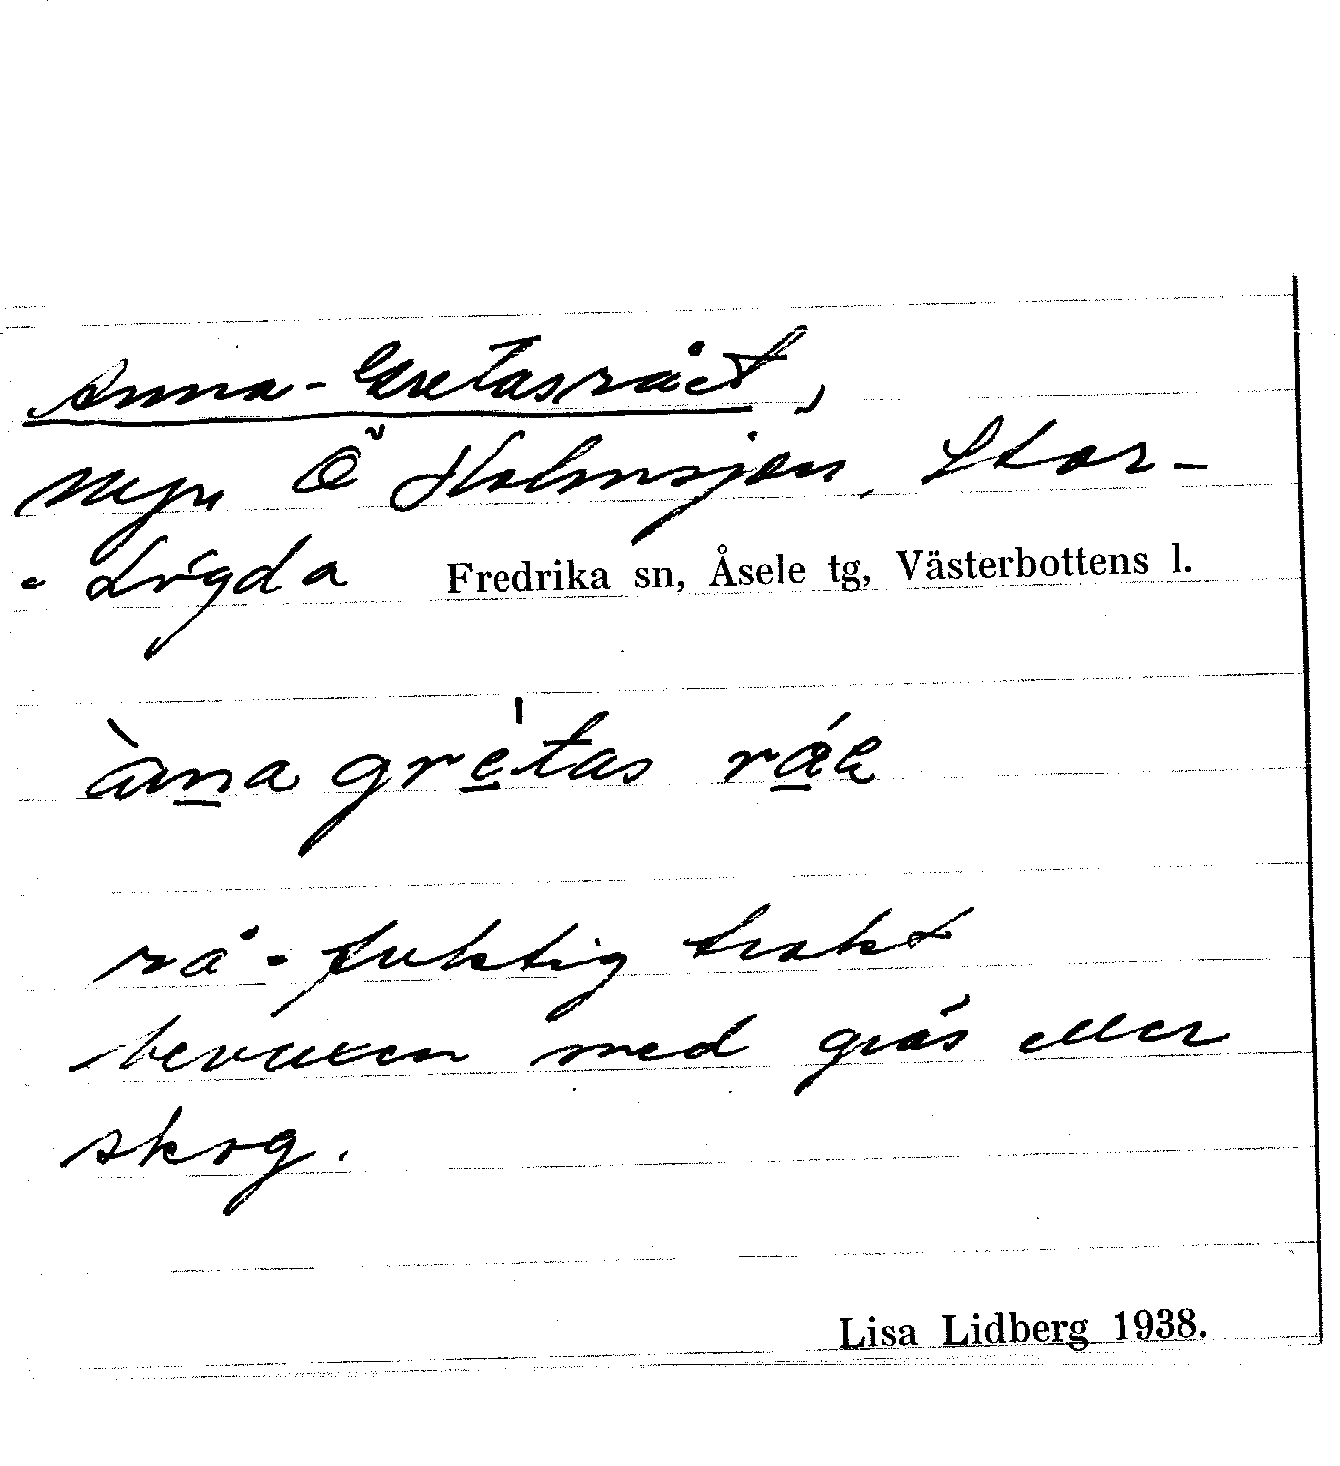 Anna-Gretasrået,
myr Ö Holmsjön, Stor-
-Lögda Fredrika sn, Åsele tg, Västerbottens l.
àna grétas ráe
rå - fuktig trakt
bevuxen med gräs eller
skog.
Lisa Lidberg 1938.